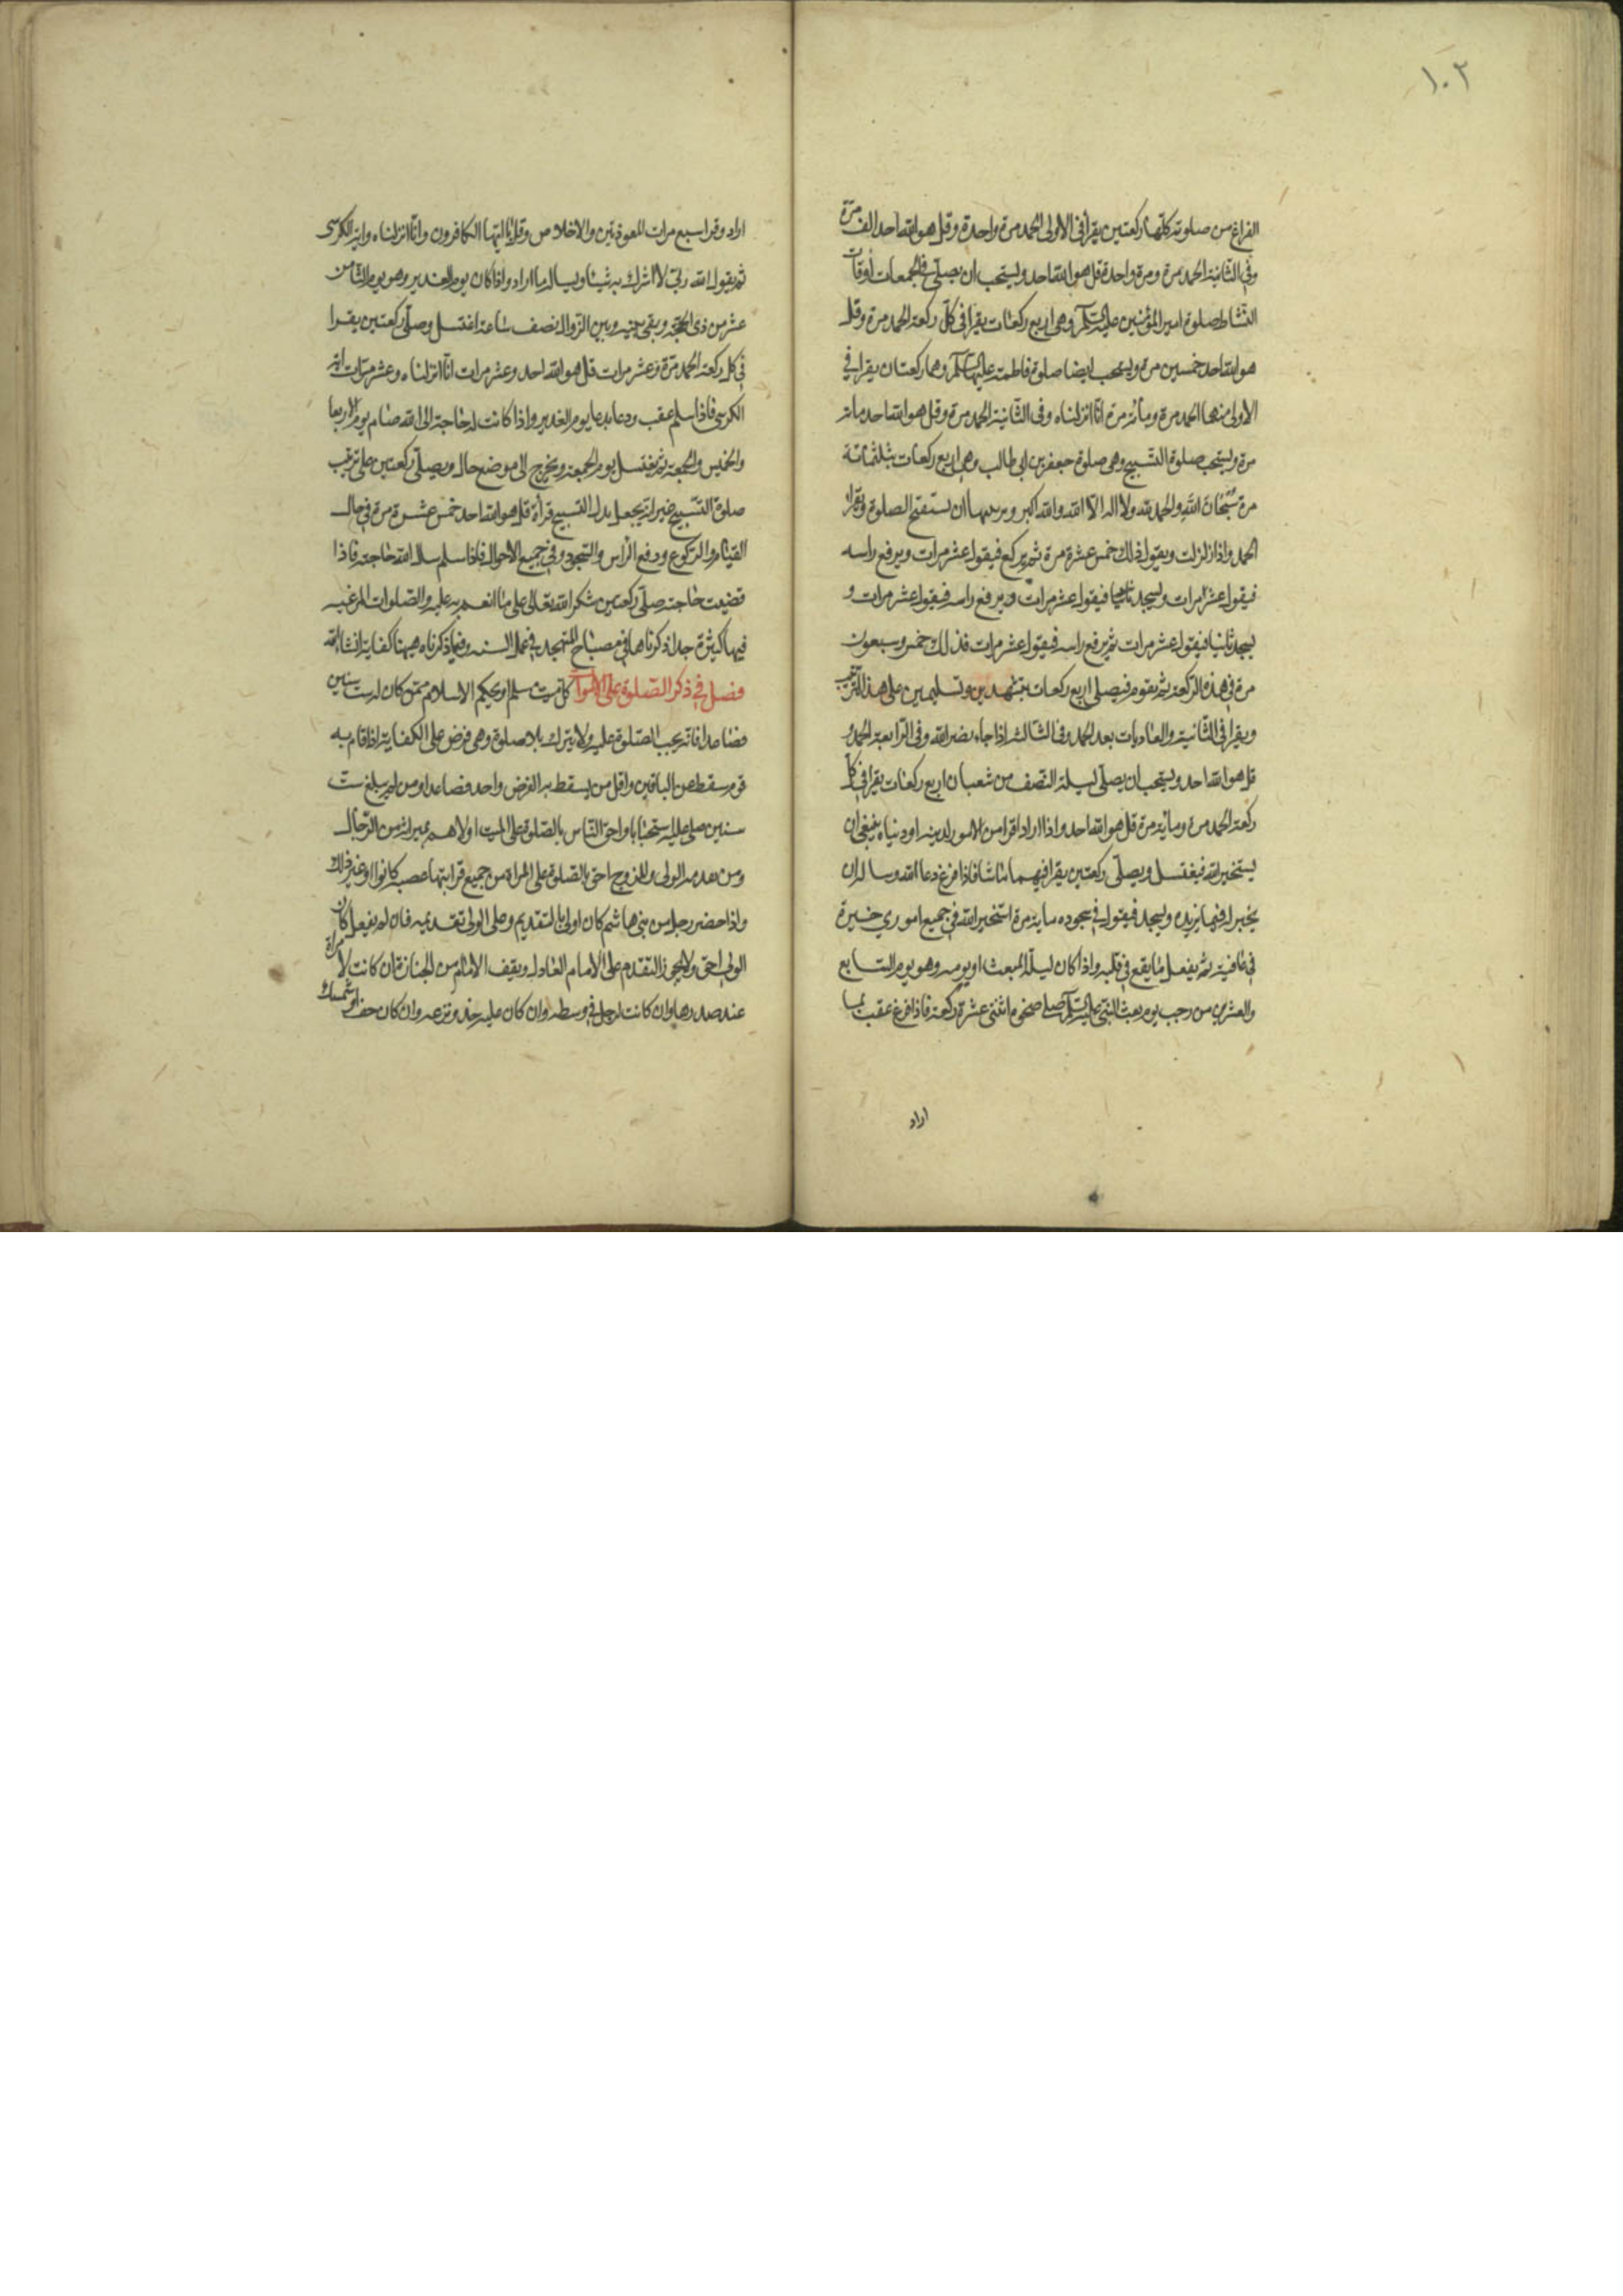 ١٠٢
الفراغ من صلوته كلّها ركعتين يقرأ في الاولى الحمد مرة واحدة وقل هو الله احد الف مرّة
وفي الثانية الحمد مرة ومرة واحدة قل هو الله احد ويستحب ان يصلّي في الجمعات اوقات
النشاط صلوة امير المؤمنين عليه السلم وهي اربع ركعات يقرا في كلّ ركعة الحمد مرة وقل
هو الله احد خمسين مرة ويستحب ايضا صلوة فاطمة عليها السلم وهما ركعتان يقرا في
الاولى منهما الحمد مرة ومائة مرة انّا انزلناه وفي الثانية الحمد مرة وقل هو الله احد مائة
مرة ويستحب صلوة التسبيح وهي صلوة جعفر بن ابي طالب وهي اربع ركعات بثلثمائة
مرة سُبْحَانَ اللهِ والحمد لله ولا اله الّا الله والله اكبر ان يستفتح الصلوة ويقرا
الحمد واذا زلزلت ويقول ذلك خمس عشرة مرة ثم يركع فيقول عشر مرات ويرفع راسه
فيقول عشر مرات ويسجد فيقول عشر مرات ويرفع راسه فيقول عشر مرات و
يسجد ثانيا فيقول عشر مرات ثم يرفع راسه فيقول عشر مرات فذلك خمس وسبعون
مرة في هذه الركعة ثم يقوم فيصلي اربع ركعات بتشهدين وتسليمين على هذا الترتيب
ويقرا في الثانية والعاديات بعد الحمد وفي الثالثة اذا جاء نصر الله وفي الرابعة الحمد و
قل هو الله احد ويستحب ان يصلّي ليلة النصف من شعبان اربع ركعات يقرا في كلّ
ركعة الحمد مرة ومائة مرة قل هو الله احد واذا اراد امرا من الامور لدينه او دنياه ينبغي ان
يستخير الله فيغتسل ويصلّي ركعتين يقرا فيهما ما شا فاذا فرغ دعا الله وساله ان
يخير له فيما يريده ويسجد فيقول في سجوده ماية مرة استخير الله في جميع اموري خيرة
في عافية ثم يفعل ما يقع في قلبه واذا كان ليلة المبعث او يومه وهو يوم السابع
والعشرين من رجب يوم بعث النبي عليه السلم صلى اثنتي عشرة ركعة فاذا فرغ عقب بما
اراد
اراد وقرا سبع مرات المعوذتين والاخلاص وقل يا ايها الكافرون وانّا انزلناه واية الكرسي
ثم يقول الله ربّي لا اشرك به شيئا ويسال ما اراد واذا كان يوم الغدير وهو يوم الثامن
عشر من ذي الحجّة وبقي بينه وبين الزوال نصف ساعة اغتسل وصلّى ركعتين يقرا
في كل ركعة الحمد مرّة وعشر مرات قل هو الله احد وعشر مرات انّا انزلناه وعشر مرّات اية
الكرسي فاذا سلم عقب ودعا بدعا يوم الغدير واذا كانت له حاجة الى الله صام يوم الاربعا
والخميس والجمعة ثم يغتسل يوم الجمعة ويخرج الى موضع خال ويصلّي ركعتين على ترتيب
صلوة التسبيح غير انّه يجعل بدل التسبيح قرأة قل هو الله احد خمس عشرة مرة في حال
القيام والركوع ورفع الراس والسجود وفي جميع الاحوال فاذا سلم سال الله حاجته فاذا
قضيت حاجته صلّى ركعتين شكر الله تعالى على ما انعم به عليه والصلوات المرغب
فيها كثيرة جدا ذكرناها في مصباح المتهجد في عمل السنه وفيما ذكرناه هيهنا كفاية انشا الله
فصل في ذكر الصلوة على الاموات كل ميت مسلم او بحكم الاسلام ممّن كان له ست سنين
فصاعدا فانّه يجب الصلوة عليه ولا يترك بلا صلوة وهي فرض على الكفاية اذا قام به
قوم سقط عن الباقين واقل من يسقط به الفرض واحد فصاعدا ومن لم يبلغ ست
سنين صلى عليه استحبابا واحق الناس بالصلوة على الميت اولاهم بميراثه من الرّجال
ومن هدمه الولي والزوج احق بالصلوة على المراة من جميع قرابتها عصبة كانوا او غير ذلك
واذا حضر رجل من بني هاشم كان اولى بالتقديم وعلى الولي تقديمه فان لم يفعل كان
الولي احق ولا يجوز التقدم على الامام العادل ويقف الامام من الجنازة ان كانت لامراة
عند صدرها وان كانت لرجل في وسطه وان كان عليه حذو نزعه وان كان خف او شمشك